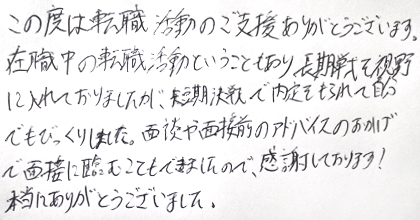 この度は転職活動のご支援ありがとうございます。
在職中の転職活動ということもあり、長期戦を視野
に入れておりましたが、短期決戦で内定をもられて自分
でもびっくりしました。面談や面接前のアドバイスのおかげ
で面接に臨むこともできましたので、感謝しております!
本当にありがとうございました。